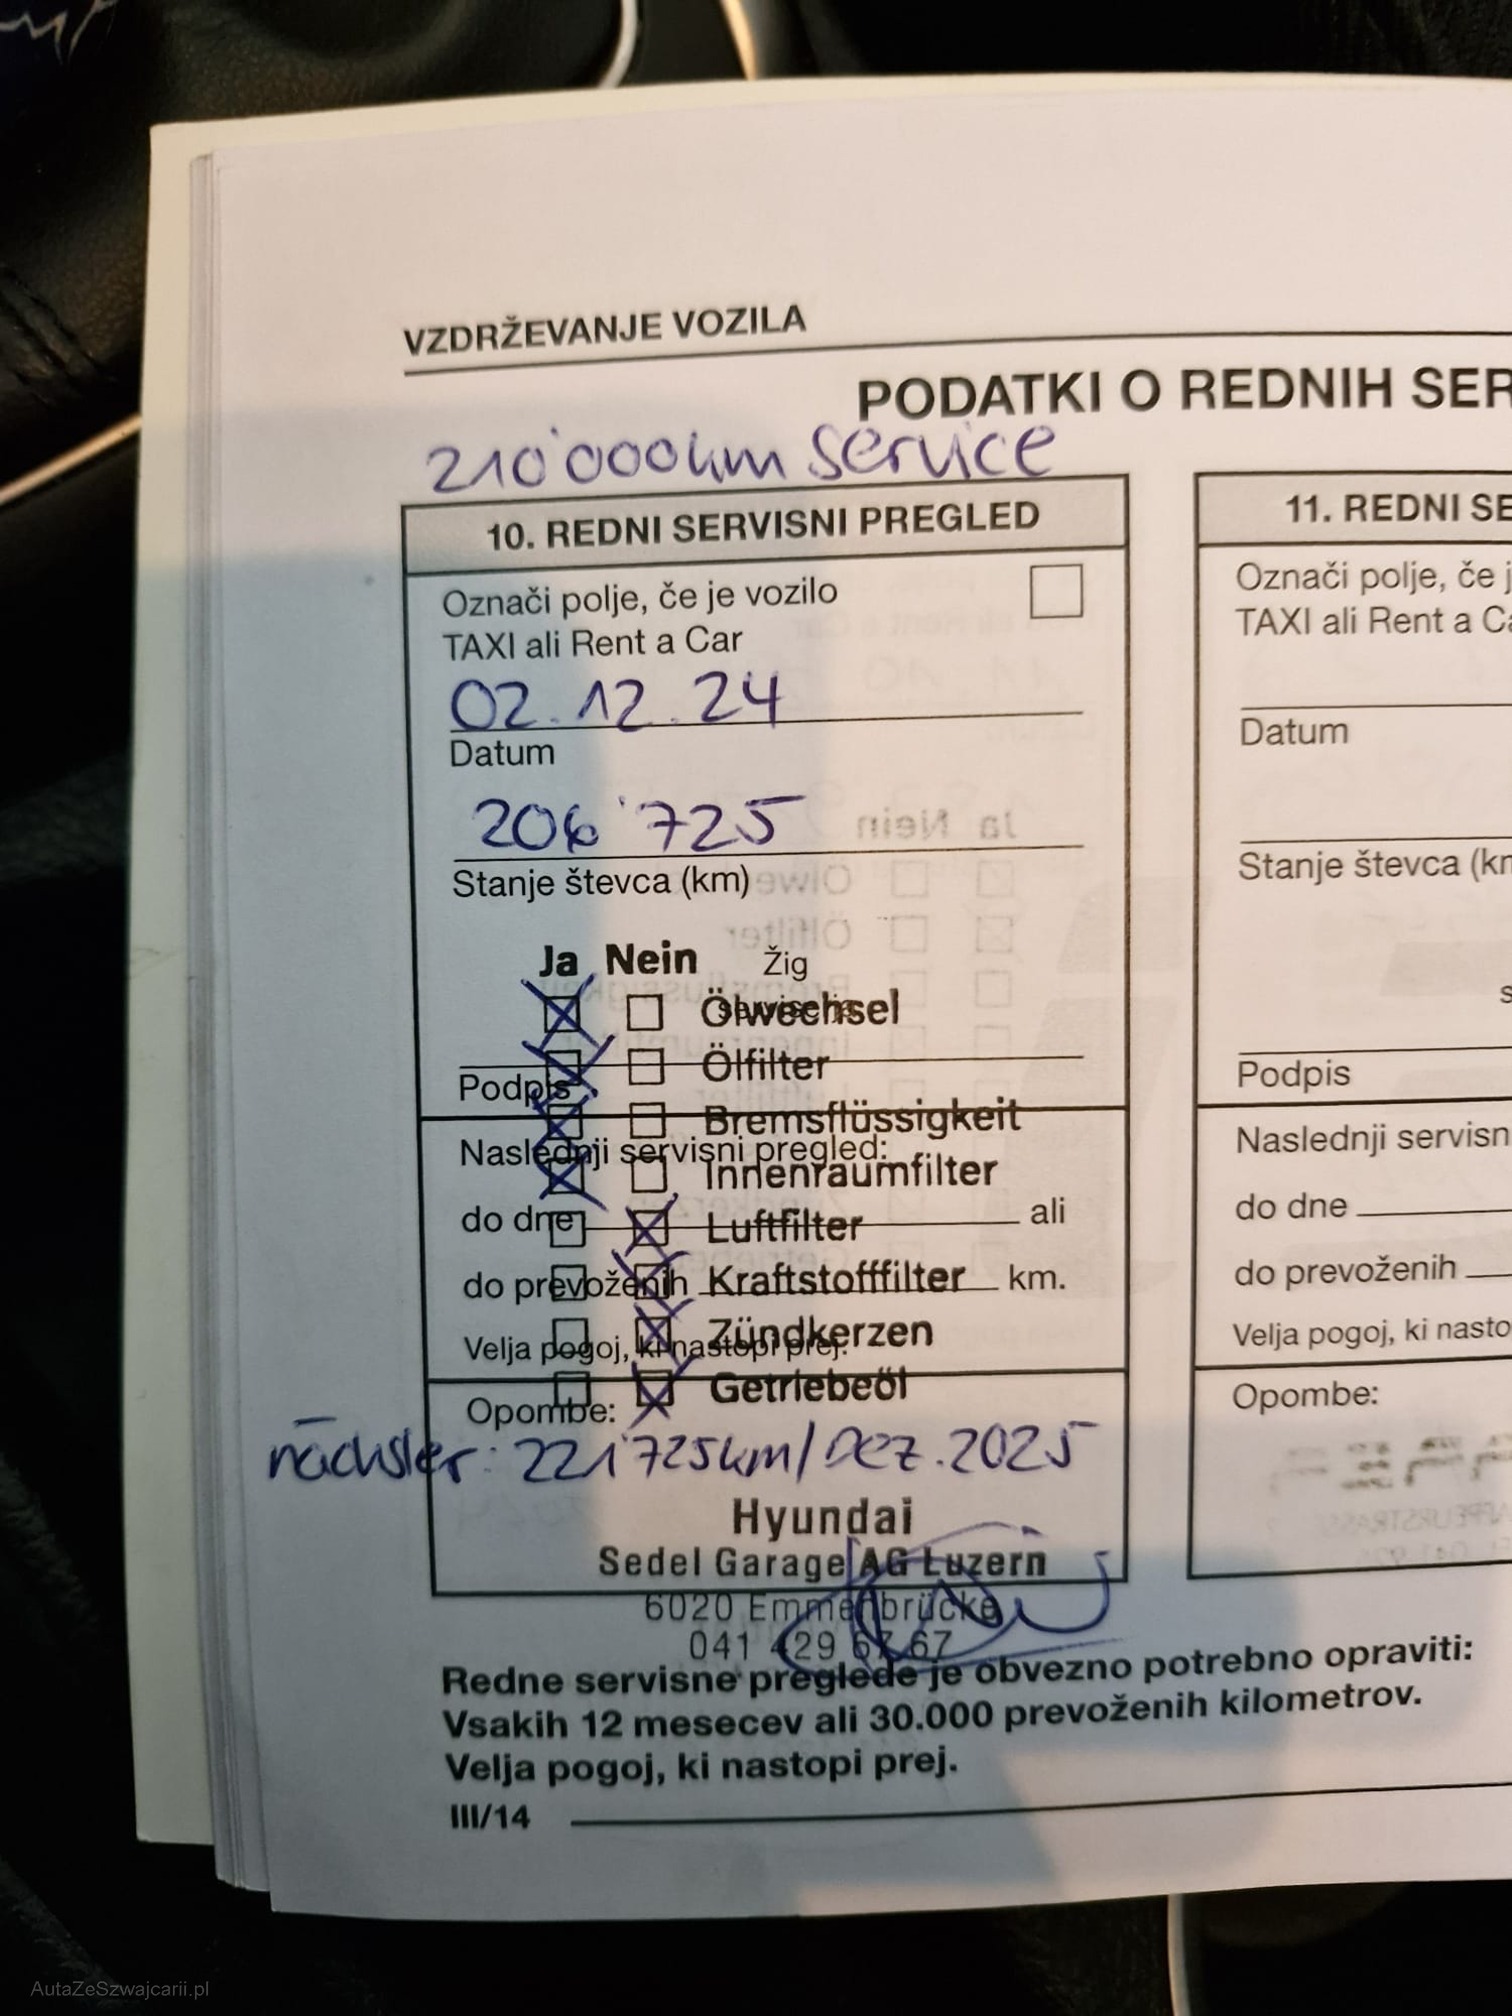 VZDRŽEVANJE VOZILA
PODATKI O REDNIH SER
210'000km Service
10. REDNI SERVISNI PREGLED
Označi polje, če je vozilo
TAXI ali Rent a Car
02.12.24
Datum
206'725
Stanje števca (km)
Ja Nein
Žig
Ölwechsel
Ölfilter
Podpis
Bremsflüssigkeit
Naslednji servisni pregled:
Innenraumfilter
do dne ali
Luftfilter
do prevoženih km.
Kraftstofffilter
Zündkerzen
Velja pogoj, ki nastopi prej.
Getriebeöl
Opombe:
nächster: 221'725km/Dez.2025
Hyundai
Sedel Garage AG Luzern
6020 Emmenbrücke
041 429 67 67
11. REDNI SE
Označi polje, če j
TAXI ali Rent a Ca
Datum
Stanje števca (km
s
Podpis
Naslednji servisn
do dne
do prevoženih
Velja pogoj, ki nasto
Opombe:
Redne servisne preglede je obvezno potrebno opraviti:
Vsakih 12 mesecev ali 30.000 prevoženih kilometrov.
Velja pogoj, ki nastopi prej.
III/14
AutaZeSzwajcarii.pl